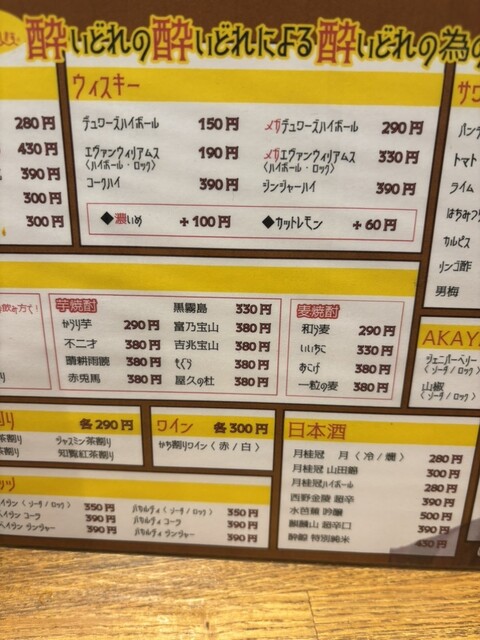 酔いどれの酔いどれによる酔いどれの為の
ウィスキー
デュワーズハイボール 150円
メガデュワーズハイボール 290円
エヴァンウィリアムス 190円
〈ハイボール・ロック〉
メガエヴァンウィリアムス 330円
〈ハイボール・ロック〉
コークハイ 390円
ジンジャーハイ 390円
◆濃いめ +100円
◆カットレモン +60円
280円
430円
390円
300円
300円
サワ
パンチ
トマト
ライム
はちみつ
カルピス
リンゴ酢
男梅
飲み方で!
芋焼酎
かりり芋 290円
不二才 380円
晴耕雨読 380円
赤兎馬 380円
黒霧島 330円
富乃宝山 380円
吉兆宝山 380円
もぐら 380円
屋久の杜 380円
麦焼酎
和ら麦 290円
いいちこ 330円
あこげ 380円
一粒の麦 380円
AKAYA
ジュニパーベリー
〈ソーダ/ロック〉
山椒
〈ソーダ/ロック〉
割り 各290円
茶割り
ジャスミン茶割り
茶割り
知覧紅茶割り
ワイン 各300円
かち割りワイン〈赤/白〉
日本酒
月桂冠 月〈冷/燗〉 280円
月桂冠 山田錦 300円
月桂冠ハイボール 280円
西野金陵 超辛 390円
水芭蕉 吟醸 500円
麒麟山 超辛口 390円
酔鯨 特別純米 430円
〈ソーダ/ロック〉 350円
コーラ 390円
ジンジャー 390円
バカルディ〈ソーダ/ロック〉 350円
バカルディ コーク 390円
バカルディ ジンジャー 390円